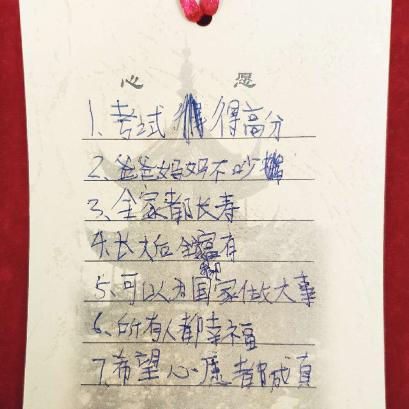 心 愿
1、考试得高分
2、爸爸妈妈不吵
3、全家都长寿
4、长大后全富有
5、可以为国家做大事
6、所有人都幸福
7、希望心愿都成真